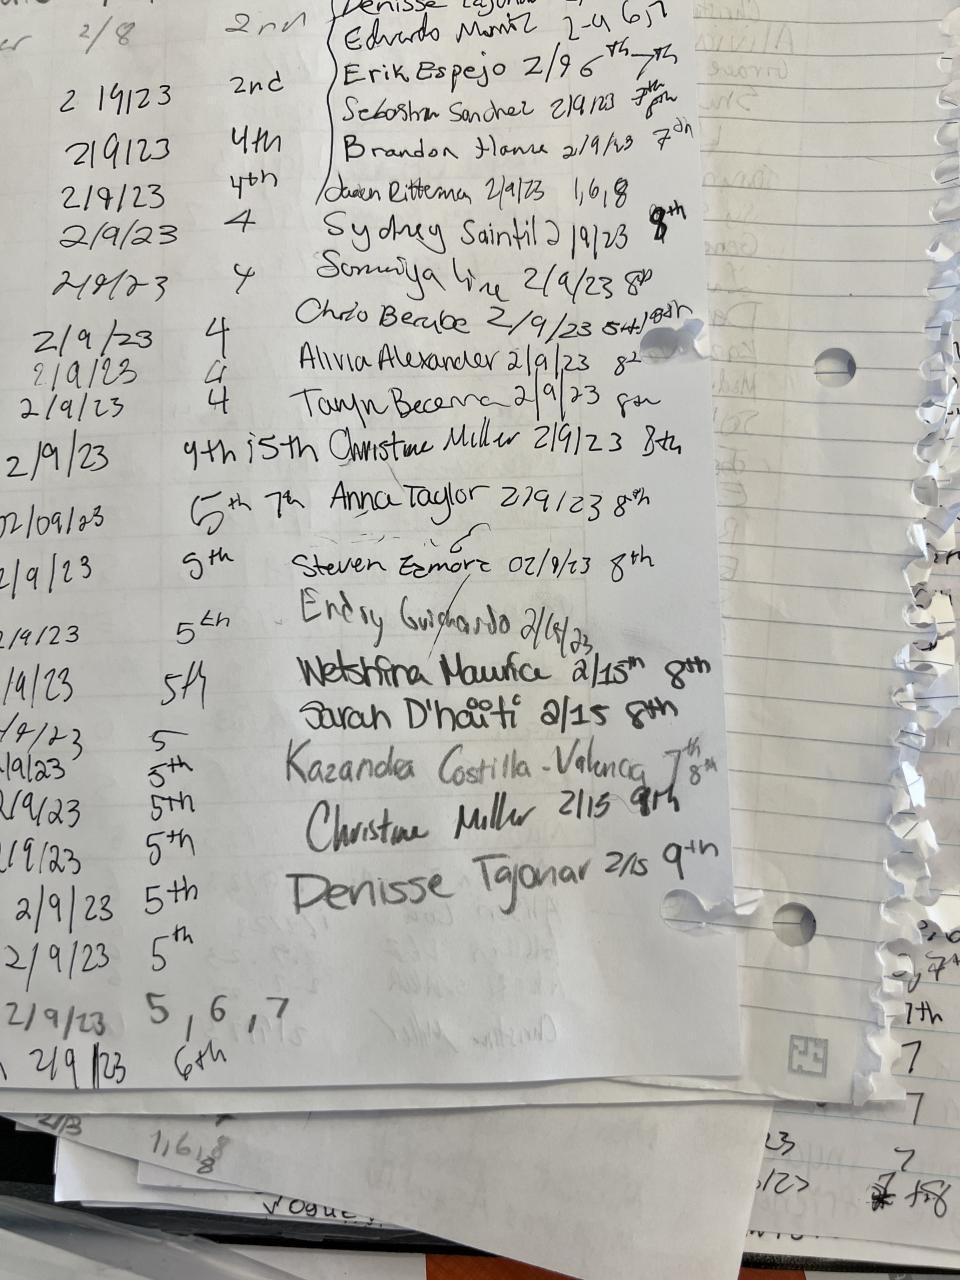 2/8 2nd
Denisse
Edvardo Muniz 2-9 6,7
2/9/23 2nd Erik Espejo 2/9 6th 7th
Sebastian Sanchez 2/9/23 7th 8th
2/9/23 4th Brandon 2/9/23 7th
2/9/23 4th Jaden Ritterman 2/9/23 1,6,8
2/9/23 4 Sydney Saintil 2/9/23 8th
2/9/23 4 2/9/23 8th
2/9/23 4 Chris Berube 2/9/23 5th/8th
2/9/23 4 Alivia Alexander 2/9/23 8th
2/9/23 4 Taryn Becerra 2/9/23 8th
2/9/23 4th i5th Christine Miller 2/9/23 8th
02/09/23 5th 7th Anna Taylor 2/9/23 8th
2/9/23 5th Steven 02/9/23 8th
2/9/23 5th Endry Guichardo 2/9/23
/9/23 5th Wetshfina Maurice 2/15th 8th
/9/23 5 Sarah D'haiti 2/15 8th
/9/23 5th Kazandra Costilla-Valencia 7th 8th
2/9/23 5th Christine Miller 2/15 9th
2/9/23 5th
2/9/23 5th Denisse Tajonar 2/15 9th
2/9/23 5th
2/9/23 5, 6, 7
2/9/23 6th
7th
7
7
2/3
1,6,8
8
23 7
/23 7+8
Vogue